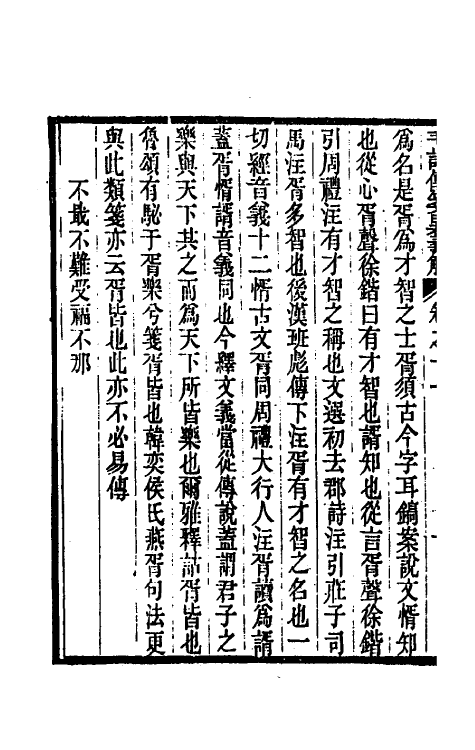 爲名是胥爲才智之士胥須古今字耳鎬案說文惰知
也從心胥聲徐鍇曰有才智也諝知也從言胥聲徐鍇
引周禮注有才智之稱也文選初去郡詩注引莊子司
馬注胥多智也後漢班彪傳下注胥有才智之名也一
切經音義十二惰古文胥同周禮大行人注胥讀爲諝
蓋胥惰諝音義同也今釋文義當從傳說蓋謂君子之
樂與天下共之而爲天下所皆樂也爾雅釋詁胥皆也
魯頌有駜于胥樂兮箋胥皆也韓奕侯氏燕胥句法更
與此類箋亦云胥皆也此亦不必易傳
不戢不難受福不那